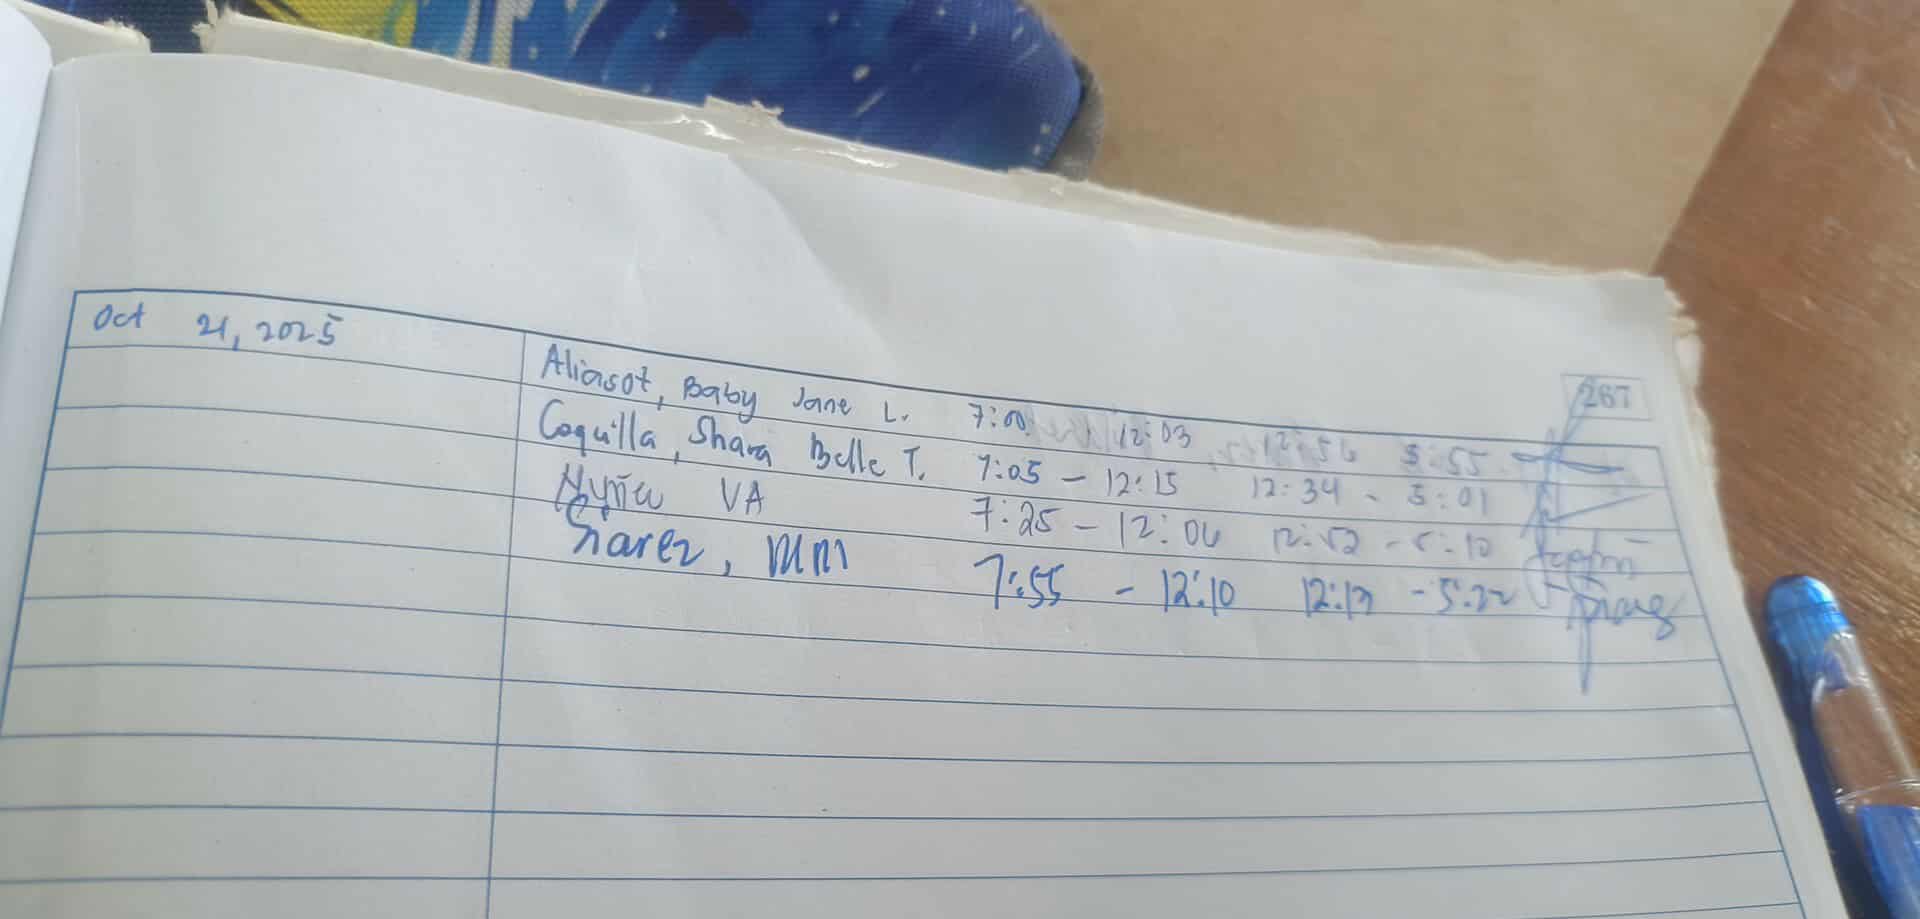 267
Oct 21, 2025
Aliasot, Baby Jane L. 7:00 12:03 12:56 5:55
Coquilla, Shara Belle T. 7:05 - 12:15 12:34 - 5:01
VA 7:25 - 12:06 12:52 - 5:10
Siarez, MM 7:55 - 12:10 12:13 - 5:22